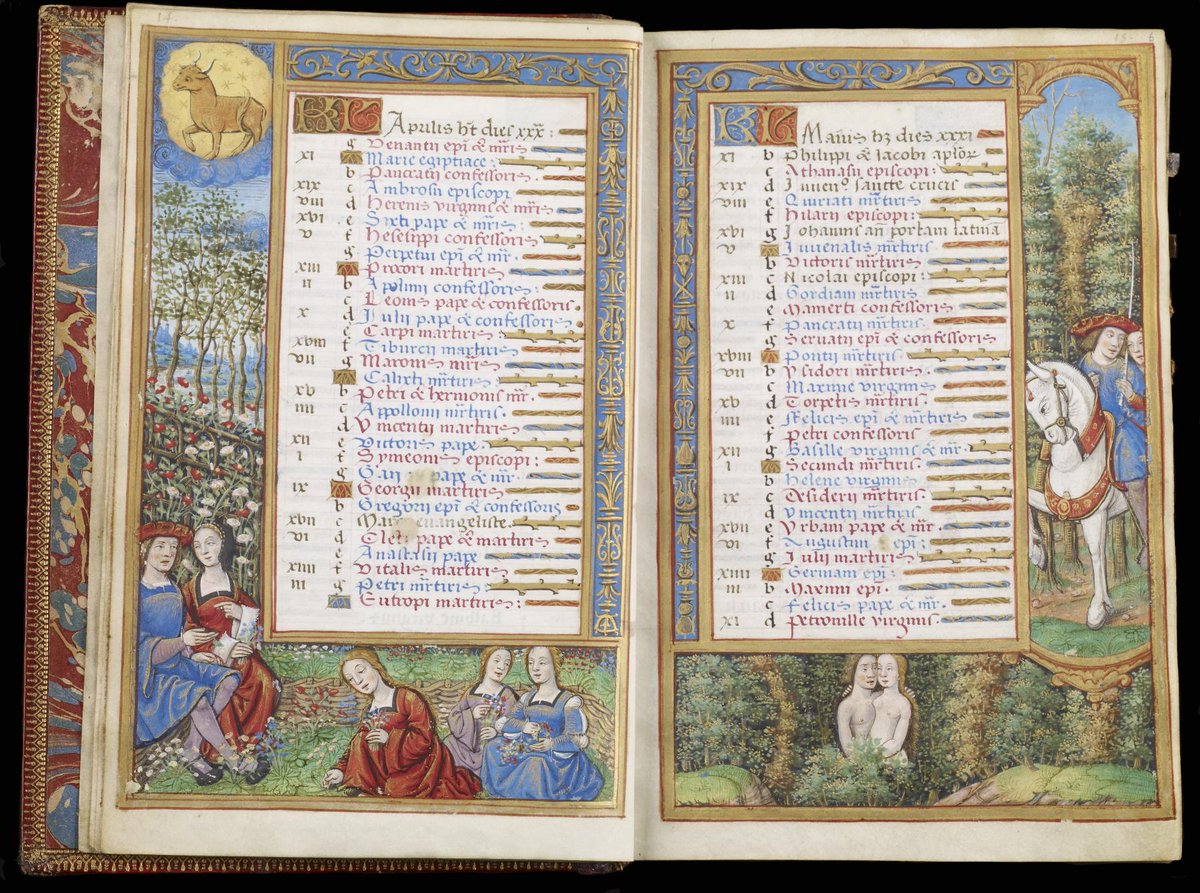 17.
KL Aprilis h͞t dies xxx:
g Venantii ep̄i & m͞ris
xi A Marie egiptiace:
b Pancratii confessoris
xix c Ambrosii episcopi
viii d Herenis virginis & m͞ris
xvi e Sixti pape & m͞ris
v f Hesesippi confessoris
g Perpetui ep̄i & m͞r.
xiii A Proxori martiris
ii b Apolini confessoris
c Leonis pape & confessoris.
x d Iulii pape & confessoris
e Carpi martiris
xviii f Tiburcii martiris
vii g Maronis m͞ris
A Calixti m͞rtiris
xv b Petri & hermonis m͞r.
iiii c Appollonii m͞rtiris
d Vincentii martiris
xii e Victoris pape
i f Symeonis episcopi:
g pape & m͞r.
ix A Georgii martiris
b Gregorii ep̄i & confessoris
xvii c euangeliste.
vi d Cleti pape & martiris
e Anastasii pape
xiiii f Vitalis martiris
iii g Petri m͞rtiris
A Eutropi martiris
15. 6
KL Maius h͞z dies xxxi
xi b Philippi & Iacobi ap̄lor͞
c Athanasii episcopi:
xix d Inuen° sancte crucis
viii e Quiriati m͞rtiris
f Hilarii episcopi:
xvi g Iohannis an̄ portam latinā
v A Iuuenalis m͞rtiris
b Victoris m͞rtiris
xiii c Nicolai episcopi:
ii d Gordiani m͞rtiris
e Mamerti confessoris
x f Pancratii m͞rtiris
g Seruatii ep̄i & confessoris
xviii A Pontii m͞rtiris
vii b Ysidori m͞rtiris
c Maxime virginis
xv d Torpetis m͞rtiris
iiii e Felicis ep̄i & m͞rtiris
f Petri confessoris
xii g Basille virginis & m͞r.
i A Secundi m͞rtiris
b Helene virginis
ix c Desiderii m͞rtiris.
d Vincentii m͞rtiris
xvii e Vrbani pape & m͞r
vi f Augustini ep̄i:
g Iulii martiris
xiiii A Germani ep̄i:
iii b Maximi ep̄i.
c Felicis pape & m͞r.
xi d Petronille virginis.